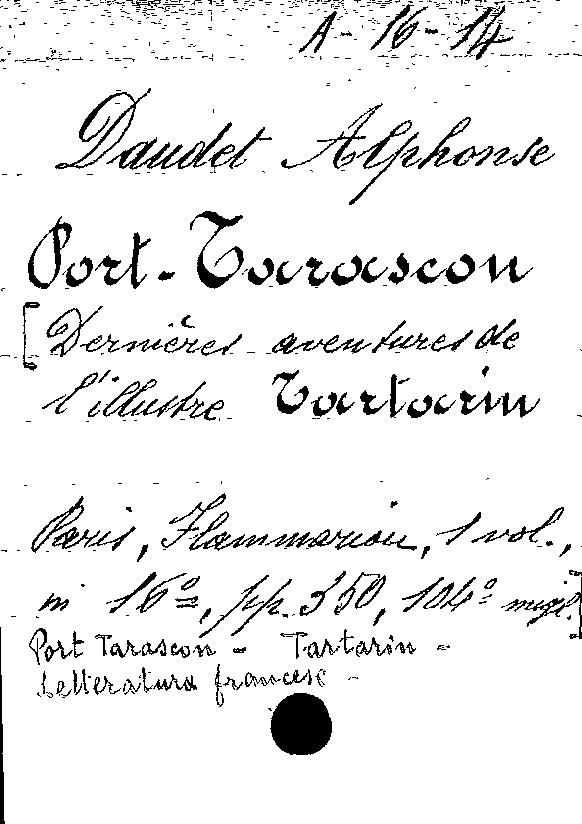 A - 16 - 14
Daudet Alphonse
Port-Tarascon
[Dernières aventures de
l'illustre Tartarin
Paris, Flammarion, 1 vol.,
in 16º, pp. 350, 104º migl.]
Port Tarascon - Tartarin -
Letteratura francese -